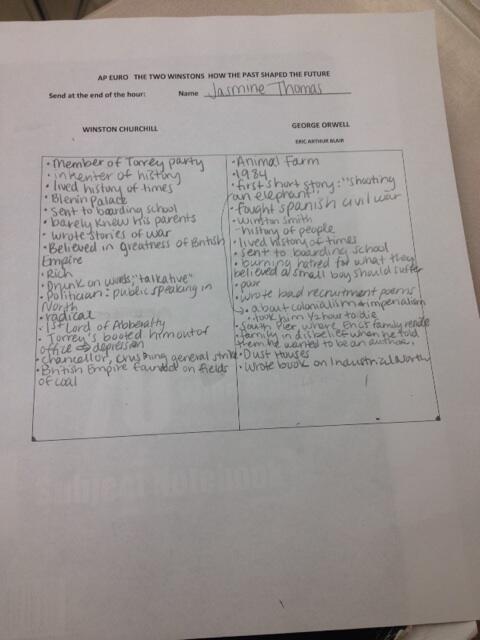 AP EURO THE TWO WINSTONS HOW THE PAST SHAPED THE FUTURE
Send at the end of the hour: Name Jasmine Thomas
WINSTON CHURCHILL
• Member of Torrey party
• inventer of history
• lived history of times
• Blenin Palace
• sent to boarding school
• barely knew his parents
• wrote stories of war
• Believed in greatness of British
Empire
• Rich
• Drunk on words; "talkative"
• Politician: public speaking in
North
• radical
• 1st Lord of Abberalty
• Torrey's booted him out of
office → depression
• chancellor, crushing general strike
• British Empire founded on fields
of coal
GEORGE ORWELL
ERIC ARTHUR BLAIR
• Animal Farm
• 1984
• first short story: "shooting
an elephant"
• fought spanish civil war
• Winston Smith
- history of people
• lived history of times
• sent to boarding school
• burning hatred for what they
believed a small boy should suffer
• poor
• wrote bad recruitment poems
→ about colonialism + imperialism
• took him 1/2 hour to die
• South Pier where Eric's family
family in disbelief when he told
them he wanted to be an author.
• Dust Houses
• Wrote book on Industrial North